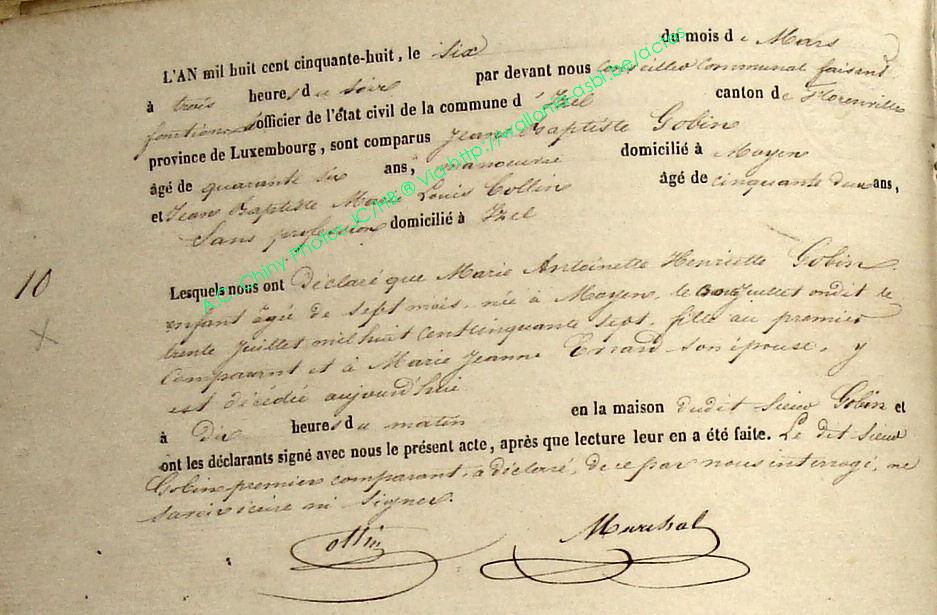 L'AN mil huit cent cinquante-huit, le six du mois de Mars
à trois heures du soir par devant nous Conseiller Communal faisant
fonctions d'officier de l'état civil de la commune d'Izel canton de Florenville
province de Luxembourg, sont comparus Jean Baptiste Gobin
âgé de quarante six ans, manoeuvre domicilié à Moyen
et Jean Baptiste Marie Louis Collin âgé de cinquante deux ans,
Sans profession domicilié à Izel
10
Lesquels nous ont Déclaré que Marie Antoinette Henriette Gobin
enfant âgé de sept mois, née à Moyen, le Juillet ondit le
trente Juillet mil huit Cent cinquante sept, fille au premier
Comparant et à Marie Jeanne Errard son épouse, y
est décédée aujourd'hui
à Dix heures du matin en la maison dudit sieur Gobin et
ont les déclarants signé avec nous le présent acte, après que lecture leur en a été faite. Le dit sieur
Gobin premier comparant, a déclaré, de ce par nous interrogé, ne
savoir écrire ni signer.
Collin Marechal
A.C. Chiny Photos JC/HB ® Via http://wallonia.asbl.be/actes